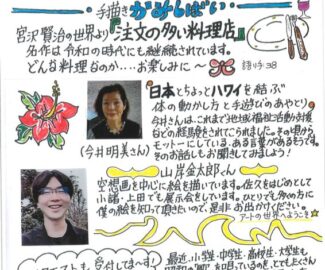 手描き かみしばい
宮沢賢治の世界より『注文の多い料理店』
名作は令和の時代にも継続されています。
どんな料理なのか‥‥お楽しみに〜
語り手:38
日本とちょっとハワイを結ぶ
体の動かし方と手遊びのあやとり
今井さんは、これまで地域福祉活動支援
などの経験をされてこられました。その頃から
モットーにしている、ある言葉があるそうです。
そのお話しもお聞きしてみましょう!
(今井明美さん)
山岸金太郎くん
空想画を中心に絵を描いています。佐久をはじめとして
小諸・上田でも展示会をしています。ひとりでも多めの方に
僕の絵を知って頂きたいので、是非お出かけください。
アートの世界へようこそ
リクエストも受付してま〜す!
最近、小学生・中学生・高校生・大学生も